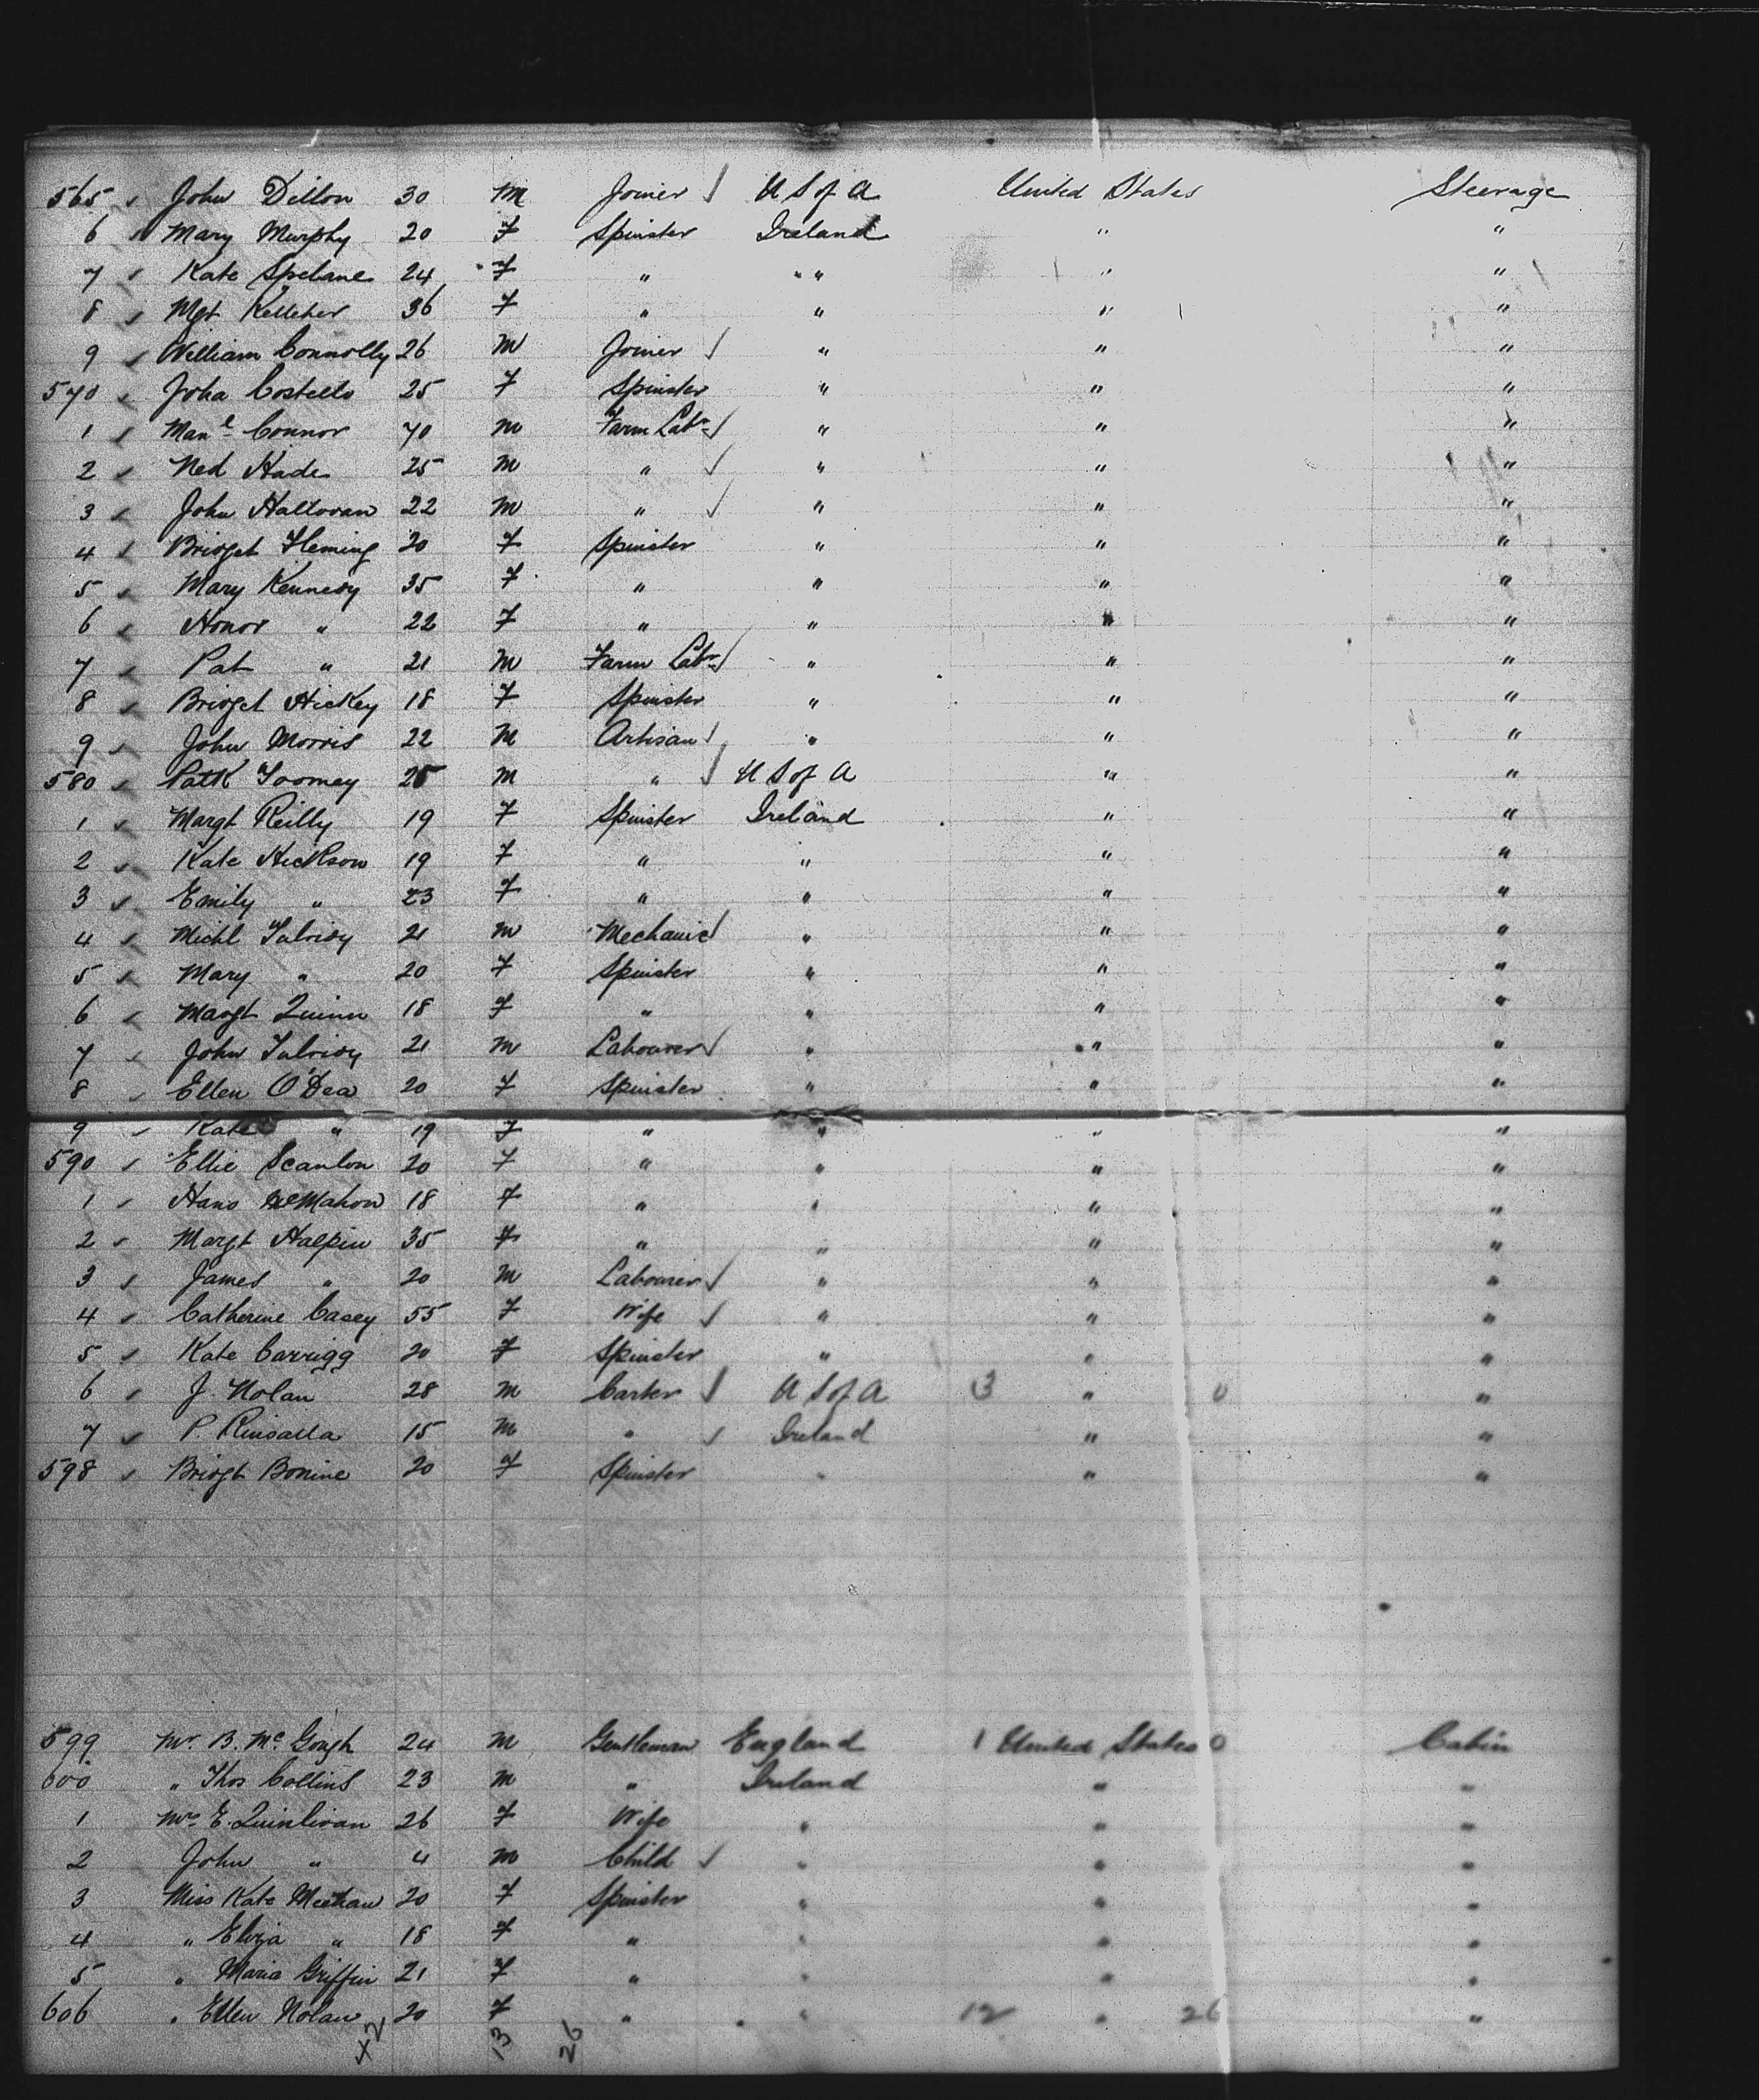 565 John Dillon 30 M Joiner U S of A United States Steerage
6 Mary Murphy 20 F Spinster Ireland " "
7 Kate Spelane 24 F " " " "
8 Mgt Kelleher 36 F " " " "
9 William Connolly 26 M Joiner " " "
570 Joha Costello 25 F Spinster " " "
1 Connor 70 M Farm Labr " " "
2 Ned Hade 25 M " " " "
3 John Halloran 22 M " " " "
4 Bridget Fleming 20 F Spinster " " "
5 Mary Kennedy 35 F " " " "
6 Honor " 22 F " " " "
7 Pat " 21 M Farm Labr " " "
8 Bridget Hickey 18 F Spinster " " "
9 John Morris 22 M Artisan " " "
580 Patk Toomey 25 M " U S of A " "
1 Margt Reilly 19 F Spinster Ireland " "
2 Kate Hickson 19 F " " " "
3 Emily " 23 F " " " "
4 Michl Talvidy 21 M Mechanic " " "
5 Mary " 20 F Spinster " " "
6 Margt Quinn 18 F " " " "
7 John Talvidy 21 M Labourer " " "
8 Ellen O'Dea 20 F Spinster " " "
9 Kate " 19 F " " " "
590 Ellie Scanlon 20 F " " " "
1 Hano McMahon 18 F " " " "
2 Margt Halpin 35 F " " " "
3 James " 20 M Labourer " " "
4 Catherine Casey 55 F Wife " " "
5 Kate Carrigg 20 F Spinster " " "
6 J. Nolan 28 M Carter U S of A 3 " 0 "
7 P. Kinsalla 15 M " Ireland " "
598 Bridgt Bonine 20 F Spinster " " "
599 Mr. B. Mc Gough 24 M Gentleman England 1 United States 0 Cabin
600 " Thos Collins 23 M " Ireland " "
1 Mrs E. Quinlivan 26 F Wife " " "
2 John " 4 M Child " " "
3 Miss Kate Meehan 20 F Spinster " " "
4 " Eliza " 18 F " " " "
5 " Maria Griffin 21 F " " " "
606 " Ellen Nolan 20 F " " 12 " 26 "
x2 13 26